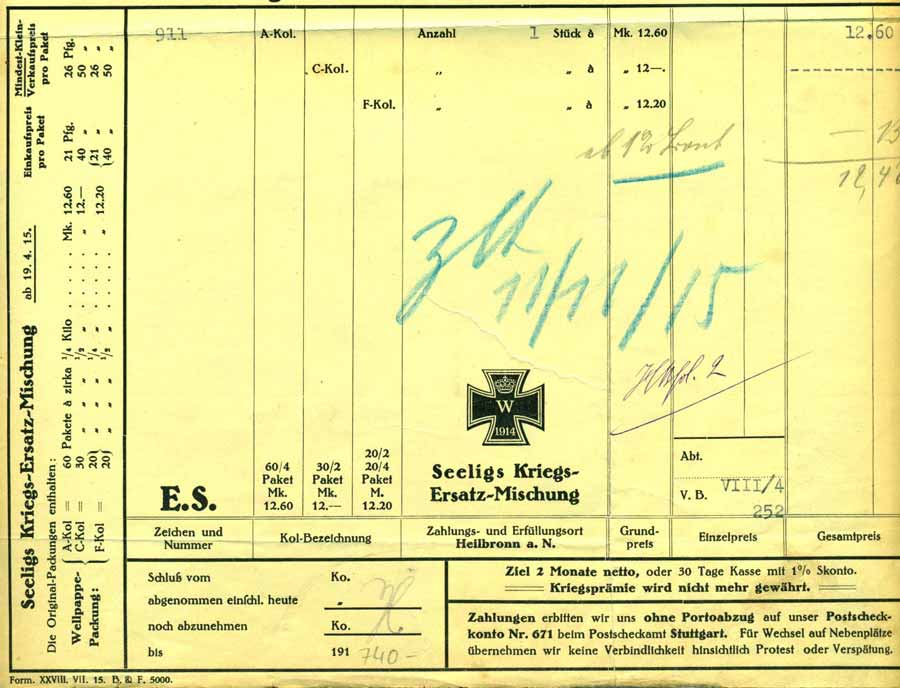 Mindest-Klein-
Verkaufspreis
pro Paket
26 Pfg.
50 „
26 „
50 „
Einkaufspreis
pro Paket
21 Pfg.
40 „
21 „
40 „
ab 19. 4. 15.
Mk. 12.60
„ 12.—
„ 12.20
Seeligs Kriegs-Ersatz-Mischung
Die Original-Packungen enthalten:
Wellpappe-
Packung:
A-Kol = 60 Pakete à zirka 1/4 Kilo
C-Kol = 30 „ „ „ 1/2 „
F-Kol = 20 „ „ „ 1/4 „
20 „ „ „ 1/2 „
911 A-Kol. Anzahl 1 Stück à Mk. 12.60 12.60
C-Kol. „ „ à „ 12—.
F-Kol. „ „ à „ 12.20
ab 1%
— 13
12,4
11/11/15
W
1914
E.S.
60/4
Paket
Mk.
12.60
30/2
Paket
Mk.
12.—
20/2
20/4
Paket
M.
12.20
Seeligs Kriegs-
Ersatz-Mischung
Abt.
V. B. VIII/4
252
Zeichen und
Nummer
Kol-Bezeichnung
Zahlungs- und Erfüllungsort
Heilbronn a. N.
Grund-
preis
Einzelpreis
Gesamtpreis
Schluß vom Ko.
abgenommen einschl. heute „
noch abzunehmen Ko.
bis 191 740-
Ziel 2 Monate netto, oder 30 Tage Kasse mit 1% Skonto.
Kriegsprämie wird nicht mehr gewährt.
Zahlungen erbitten wir uns ohne Portoabzug auf unser Postscheck-
konto Nr. 671 beim Postscheckamt Stuttgart. Für Wechsel auf Nebenplätze
übernehmen wir keine Verbindlichkeit hinsichtlich Protest oder Verspätung.
Form. XXVIII. VII. 15. B. & F. 5000.